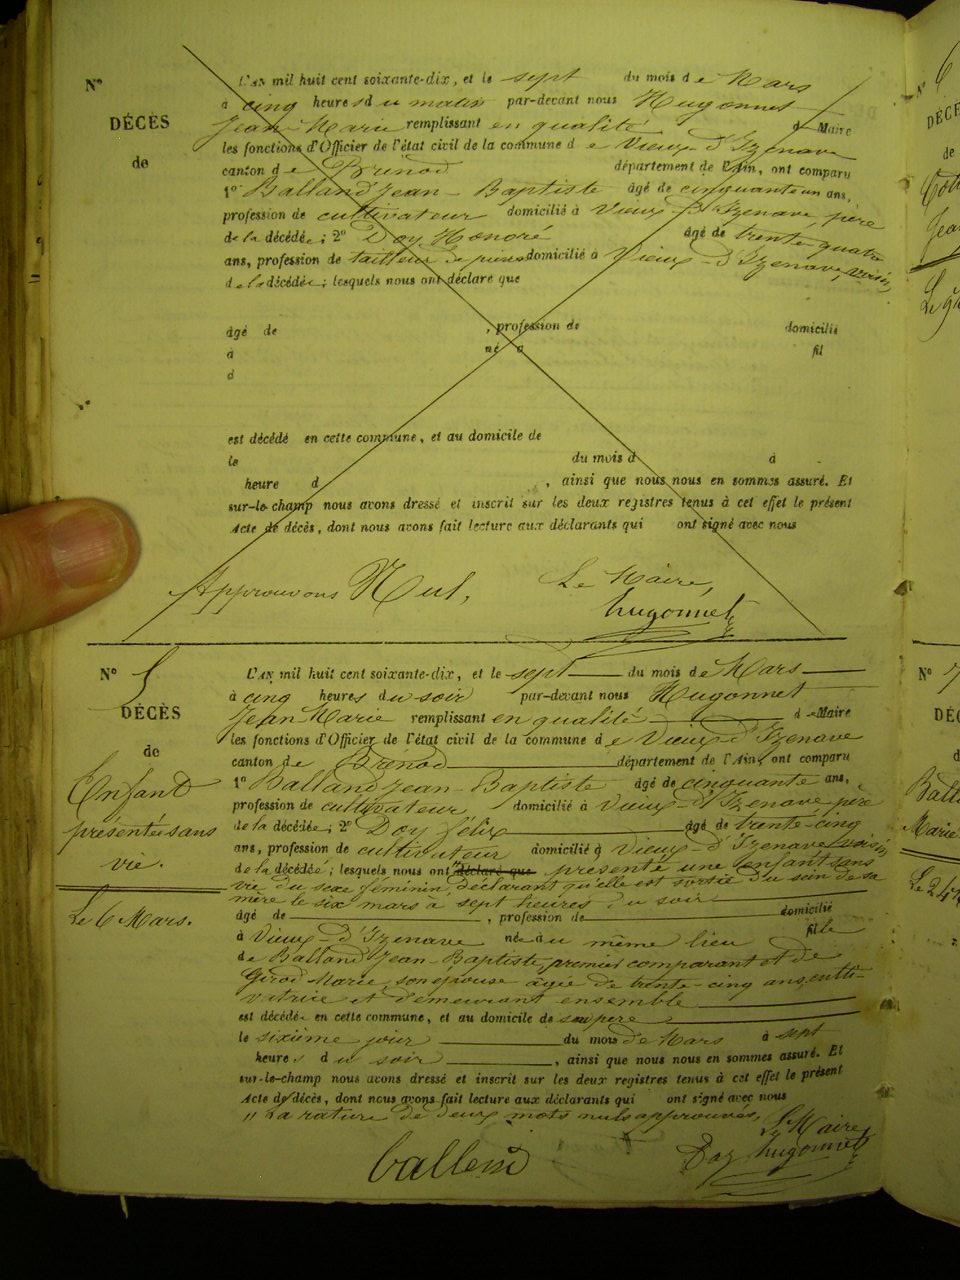 N°
DÉCÈS
de
L'AN mil huit cent soixante-dix, et le sept du mois de Mars
à cinq heures du matin par-devant nous Hugonnet
Jean-Marie remplissant en qualité d Maire
les fonctions d'Officier de l'état civil de la commune de Vieux-d'Izenave
canton de Brénod département de l'Ain, ont comparu
1° Balland Jean-Baptiste âgé de cinquante un ans,
profession de cultivateur domicilié à Vieux-d'Izenave, père
de la décédée; 2° Doy Honoré âgé de trente-quatre
ans, profession de tailleur de pierres domicilié à Vieux-d'Izenave, voisin
de la décédée; lesquels nous ont déclaré que
âgé de , profession de domicilié
à né à fil
d
est décédé en cette commune, et au domicile de
le du mois d à
heure d , ainsi que nous nous en sommes assuré. Et
sur-le-champ nous avons dressé et inscrit sur les deux registres tenus à cet effet le présent
Acte de décès, dont nous avons fait lecture aux déclarants qui ont signé avec nous
Approuvons Nul, Le Maire,
hugonnet
N° 5
DÉCÈS
de
Enfant
présentée sans
vie.
Le 6 Mars.
L'AN mil huit cent soixante-dix, et le sept du mois de Mars
à cinq heures du soir par-devant nous Hugonnet
Jean Marie remplissant en qualité d Maire
les fonctions d'Officier de l'état civil de la commune de Vieux-d'Izenave
canton de Brénod département de l'Ain, ont comparu
1° Balland Jean-Baptiste âgé de cinquante ans,
profession de cultivateur domicilié à Vieux-d'Izenave, père
de la décédée; 2° Doy Félix âgé de trente-cinq
ans, profession de cultivateur domicilié à Vieux-d'Izenave, voisin
de la décédée; lesquels nous ont déclaré que présenté une enfant sans
vie du sexe féminin, déclarant qu'elle est sortie du sein de sa
mère le six mars à sept heures du soir
âgé de , profession de domicilié
à Vieux-d'Izenave née au même lieu fille
de Balland Jean-Baptiste, premier comparant et de
Girod Marie, son épouse âgée de trente-cinq ans, culti-
vatrice et demeurant ensemble
est décédée en cette commune, et au domicile de son père
le sixième jour du mois de Mars à sept
heures du soir , ainsi que nous nous en sommes assuré. Et
sur-le-champ nous avons dressé et inscrit sur les deux registres tenus à cet effet le présent
Acte de décès, dont nous avons fait lecture aux déclarants qui ont signé avec nous
" La rature de deux mots nuls approuvée.
Le Maire
balland Doy hugonnet